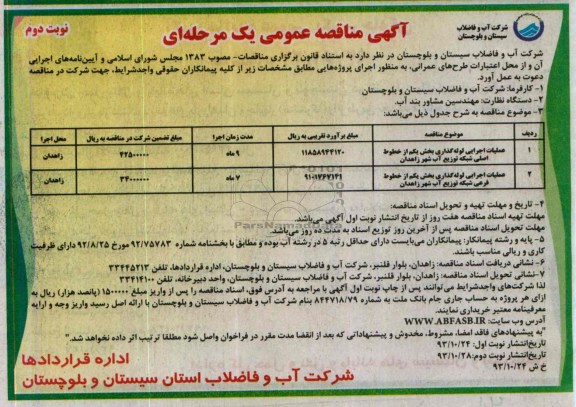 شرکت آب و فاضلاب
سیستان و بلوچستان
آگهی مناقصه عمومی یک مرحله‌ای
نوبت دوم
شرکت آب و فاضلاب سیستان و بلوچستان در نظر دارد به استناد قانون برگزاری مناقصات- مصوب ۱۳۸۳ مجلس شورای اسلامی و آیین‌نامه‌های اجرایی
آن و از محل اعتبارات طرح‌های عمرانی، به منظور اجرای پروژه‌هایی مطابق مشخصات زیر از کلیه پیمانکاران حقوقی واجدشرایط، جهت شرکت در مناقصه
دعوت به عمل آورد.
۱- کارفرما: شرکت آب و فاضلاب سیستان و بلوچستان
۲- دستگاه نظارت: مهندسین مشاور بند آب.
۳- موضوع مناقصه به شرح جدول ذیل می‌باشد:
ردیف موضوع مناقصه مبلغ برآورد تقریبی به ریال مدت زمان اجرا مبلغ تضمین شرکت در مناقصه به ریال محل اجرا
۱ عملیات اجرایی لوله‌گذاری بخش یکم از خطوط اصلی شبکه توزیع آب شهر زاهدان ۱۱۸۵۸۹۴۴۱۲۰ ۹ ماه ۴۲۵۰۰۰۰۰۰ زاهدان
۲ عملیات اجرایی لوله‌گذاری بخش یکم از خطوط فرعی شبکه توزیع آب شهر زاهدان ۹۱۰۱۷۶۷۱۴۱ ۷ ماه ۳۴۰۰۰۰۰۰۰ زاهدان
۴- تاریخ و مهلت تهیه و تحویل اسناد مناقصه:
مهلت تهیه اسناد مناقصه هفت روز از تاریخ انتشار نوبت اول آگهی می‌باشد.
مهلت تحویل اسناد مناقصه پس از آخرین روز توزیع اسناد به مدت ده روز می‌باشد.
۵- پایه و رشته پیمانکار: پیمانکاران می‌بایست دارای حداقل رتبه ۵ در رشته آب بوده و مطابق با بخشنامه شماره ۹۲/۷۵۷۸۳ مورخ ۹۲/۸/۲۵ دارای ظرفیت
کاری و ریالی مناسب باشند.
۶- نشانی دریافت اسناد مناقصه: زاهدان، بلوار قلنبر، شرکت آب و فاضلاب سیستان و بلوچستان، اداره قراردادها، تلفن ۳۳۴۴۵۲۱۳
۷- نشانی تحویل اسناد مناقصه: زاهدان، بلوار قلنبر، شرکت آب و فاضلاب سیستان و بلوچستان، واحد دبیرخانه، تلفن ۳۳۴۱۴۱۰۰
لذا شرکت‌های واجدشرایط می‌توانند پس از چاپ نوبت اول آگهی با مراجعه به آدرس فوق، اسناد مناقصه را پس از واریز مبلغ ۱۵۰۰۰۰۰ (پانصد هزار) ریال به
ازای هر پروژه به حساب جاری جام بانک ملت به شماره ۸۴۴۷۱۸/۷۹ بنام شرکت آب و فاضلاب سیستان و بلوچستان با ارائه اصل رسید واریز وجه و ارایه
معرفینامه معتبر خریداری نمایند.
آدرس وب سایت: WWW.ABFASB.IR
"به پیشنهادهای فاقد امضا، مشروط، مخدوش و پیشنهاداتی که بعد از انقضا مدت مقرر در فراخوان واصل شود مطلقا ترتیب اثر داده نخواهد شد."
تاریخ انتشار نوبت اول: ۹۳/۱۰/۲۴
تاریخ انتشار نوبت دوم: ۹۳/۱۰/۲۸
خ ش ۹۳/۱۰/۲۴
اداره قراردادها
شرکت آب و فاضلاب استان سیستان و بلوچستان